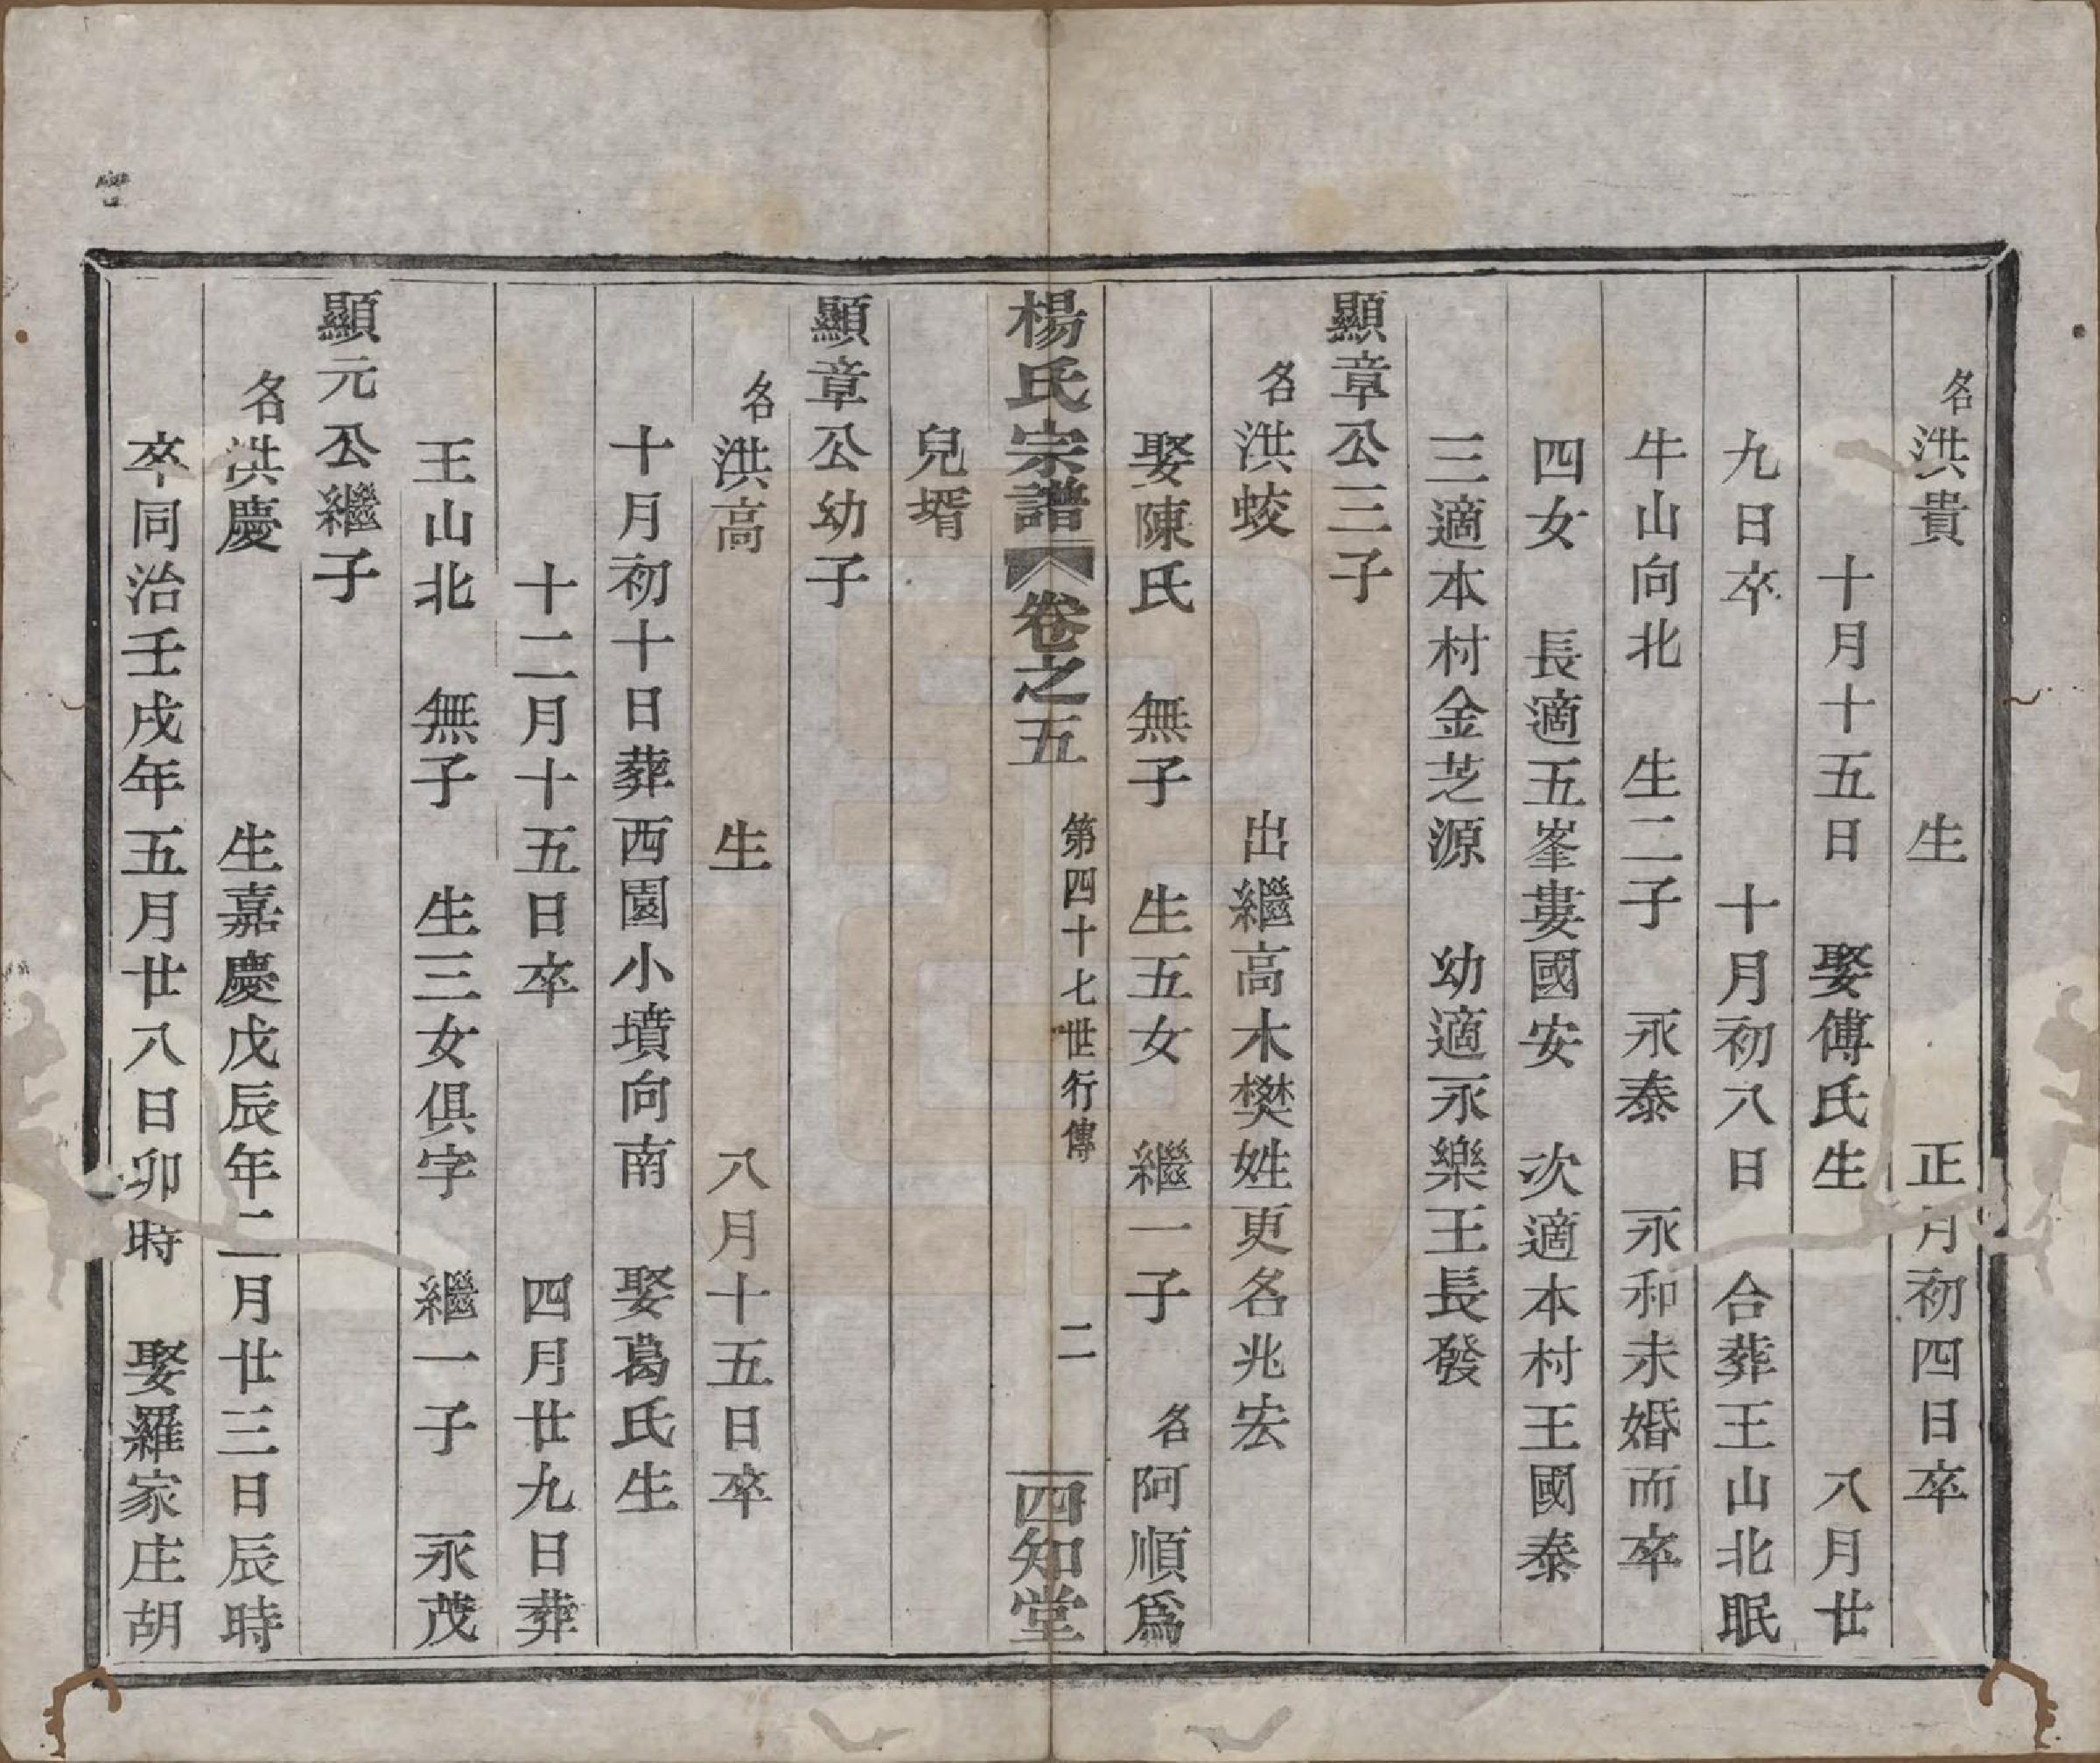 名洪貴 生 正月初四日卒
十月十五日 娶傅氏生 八月廿
九日卒 十月初八日 合葬王山北眠
牛山向北 生二子 永泰 永和未婚而卒
四女 長適五峯婁國安 次適本村王國泰
三適本村金芝源 幼適永樂王長發
顯章公三子
名洪蛟 出繼高木樊姓更名兆宏
娶陳氏 無子 生五女 繼一子 名阿順爲
楊氏宗譜 卷之五 第四十七世行傳 二 四知堂
兒壻
顯章公幼子
名洪高 生 八月十五日卒
十月初十日葬西園小墳向南 娶葛氏生
十二月十五日卒 四月廿九日葬
王山北 無子 生三女俱字 繼一子 永茂
顯元公繼子
名洪慶 生嘉慶戊辰年二月廿三日辰時
卒同治壬戌年五月廿八日卯時 娶羅家庄胡